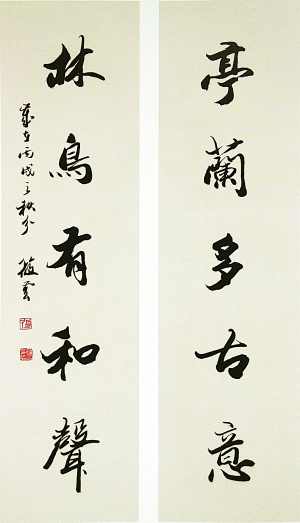 亭蘭多古意
林鳥有和聲
歲在丙戌之秋分